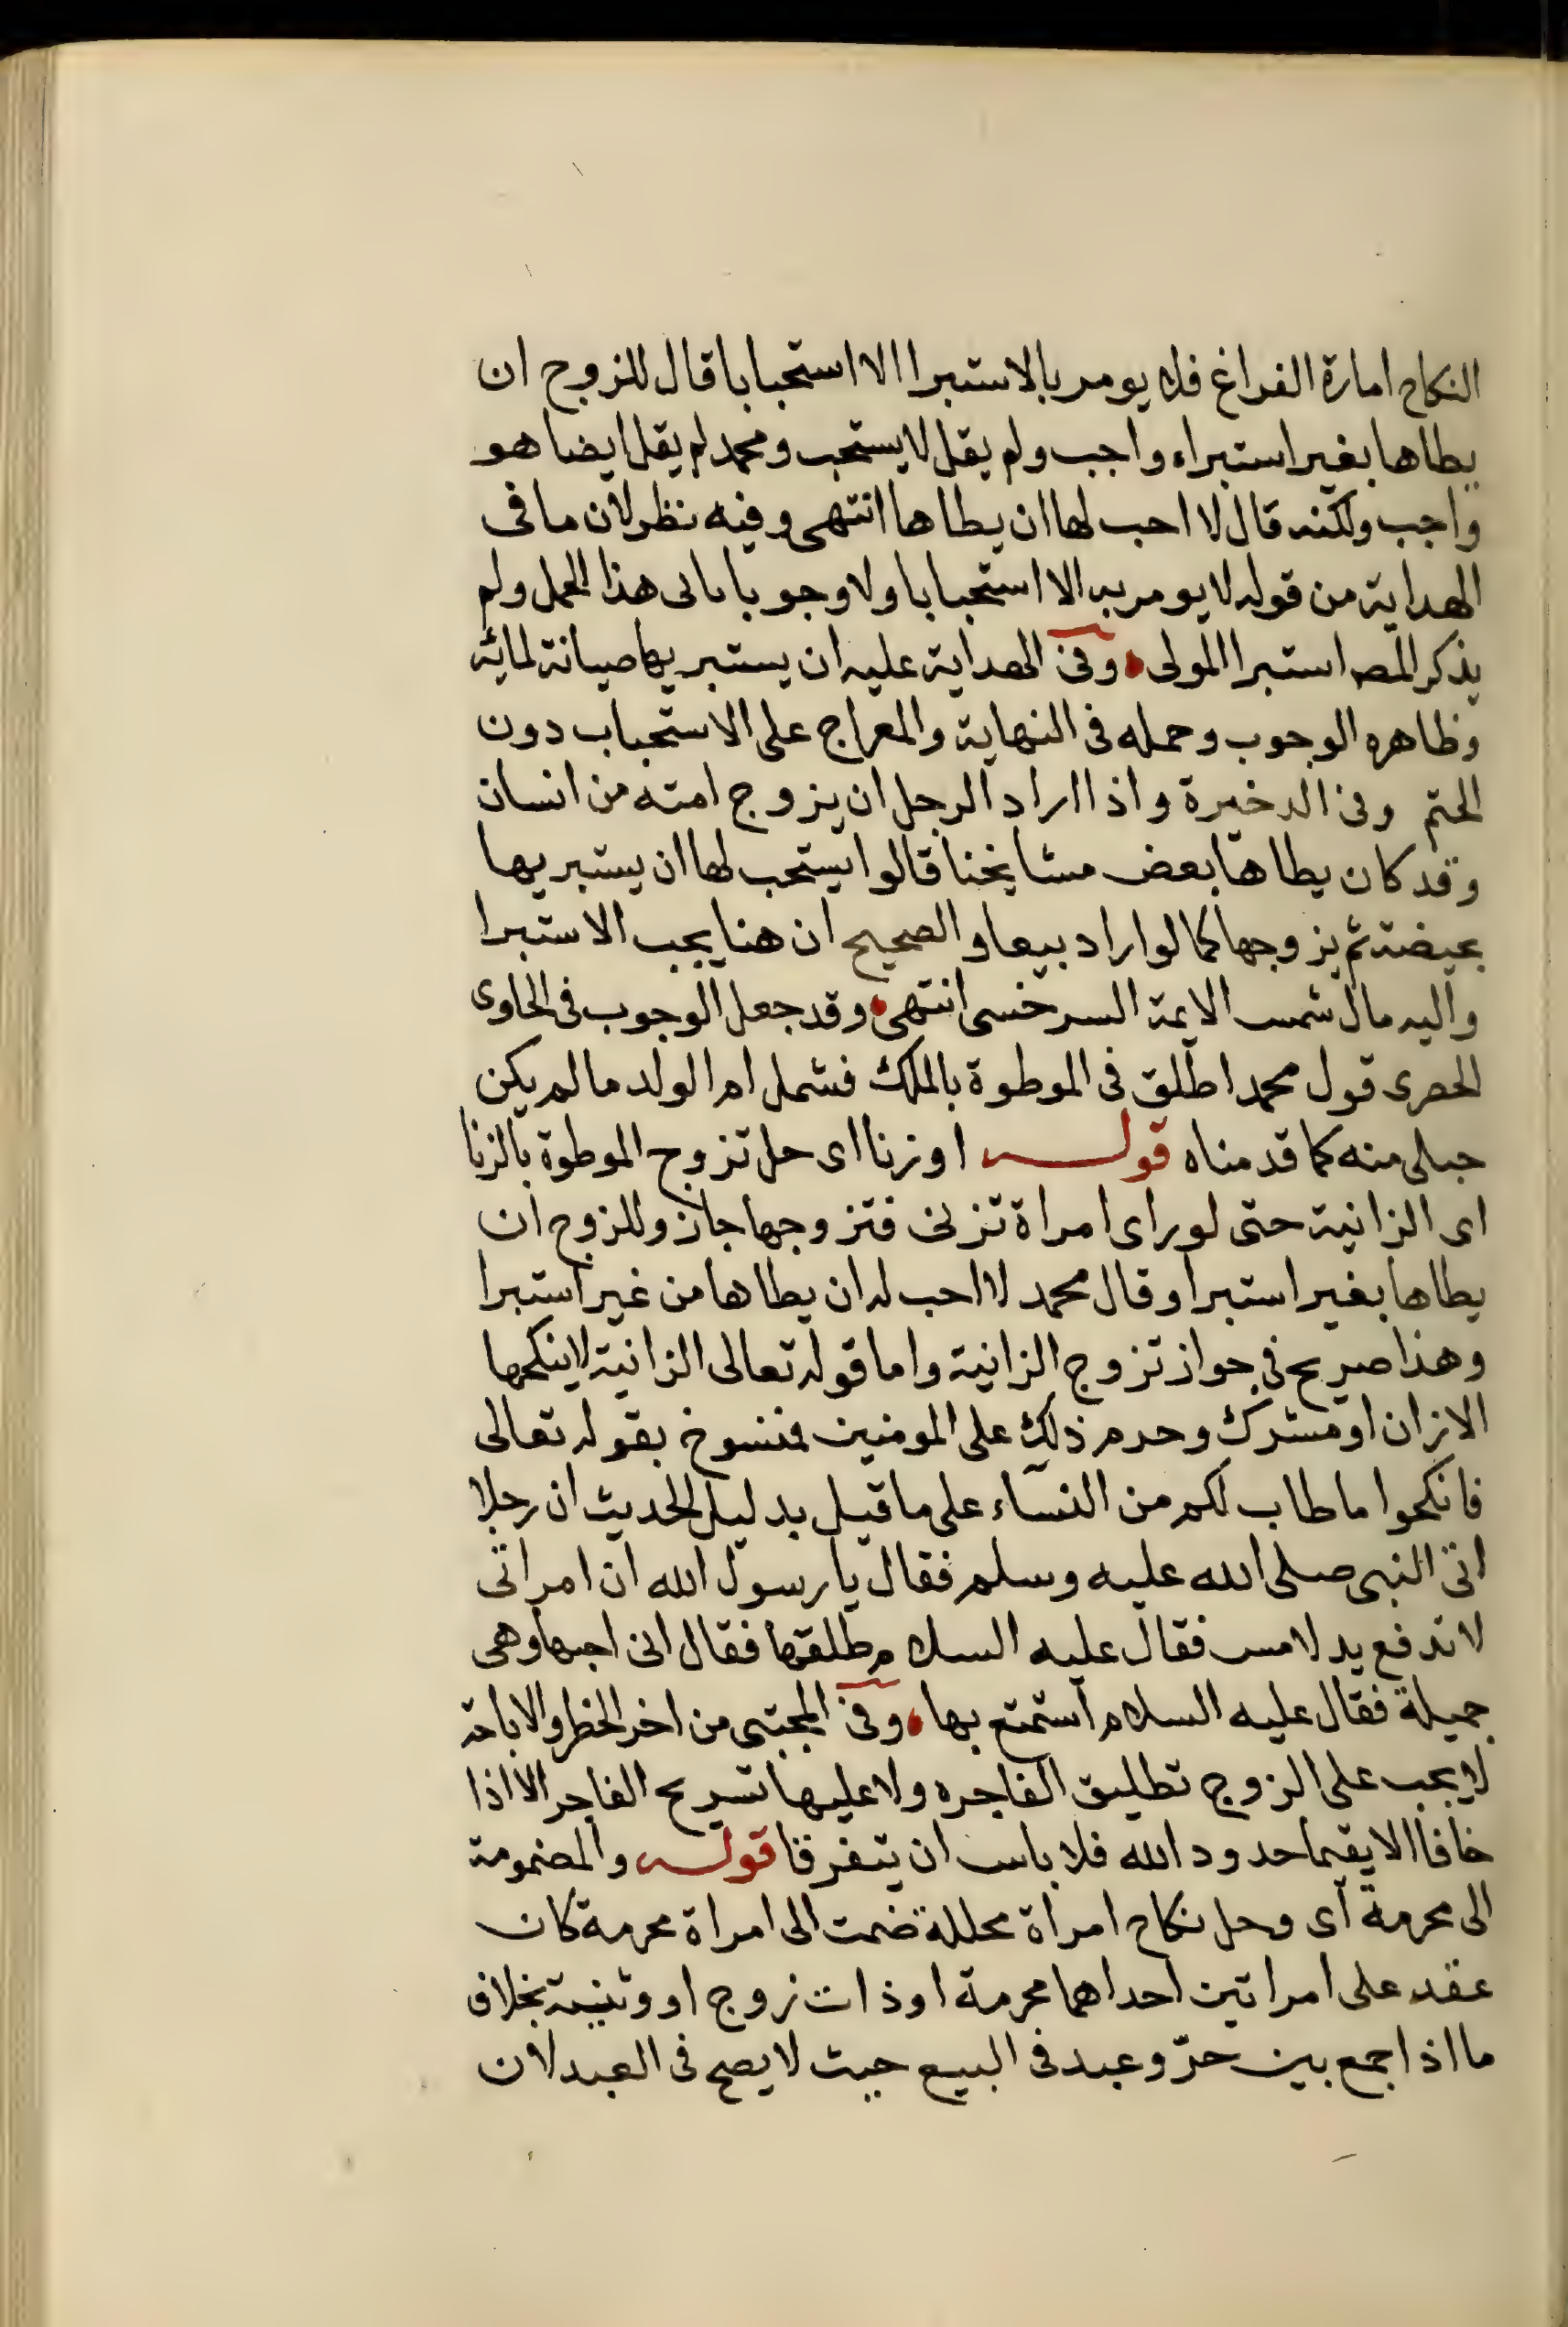 النكاح امارة الفراغ فلا يومر بالاستبرا الا استحبابا قال للزوج ان
يطاها بغير استبراء واجب ولم يقل لا يستحب ومحمد لم يقل ايضا هو
واجب ولكنه قال لا احب لها ان يطاها انتهى وفيه نظر لان ما فى
الهداية من قوله لا يومر به الا استحبابا ولا وجوبا يابى هذا الحمل ولم
يذكر المصـ استبرا المولى وفى الهداية عليه ان يستبريها صيانة لمائه
وظاهره الوجوب وحمله فى النهاية والمعراج على الاستحباب دون
الحتم وفى الدخيرة واذا اراد الرجل ان يزوج امته من انسان
وقد كان يطاها بعض مشايخنا قالوا يستحب لها ان يستبريها
بحيضة ثم يزوجها كما لو اراد بيعها والصحيح ان هنا يجب الاستبرا
واليه مال شمس الايمة السرخسى انتهى وقد جعل الوجوب فى الحاوى
الحصرى قول محمد اطلق فى الموطوة بالملك فشمل ام الولد ما لم يكن
حبلى منه كما قدمناه قوله او زنا اى حل تزوج الموطوة بالزنا
اى الزانية حتى لو راى امراة تزنى فتزوجها جاز وللزوج ان
يطاها بغير استبرا وقال محمد لا احب له ان يطاها من غير استبرا
وهذا صريح فى جواز تزوج الزانية واما قوله تعالى الزانية لا ينكحها
الا زان او مشرك وحرم ذلك على المومنين فمنسوخ بقوله تعالى
فانكحوا ما طاب لكم من النساء على ما قيل بدليل الحديث ان رجلا
اتى النبى صلى الله عليه وسلم فقال يا رسول الله ان امراتى
لا تدفع يد لامس فقال عليه السلام طلقها فقال انى احبها وهى
جميلة فقال عليه السلام استمتع بها وفى المجتبى من اخر الحظر والاباحة
لا يجب على الزوج تطليق الفاجره ولا عليها تسريح الفاجر الا اذا
خافا الا يقيما حدود الله فلا باس ان يتفرقا قوله والمضمومة
الى محرمة اى وحل نكاح امراة محللة ضمت الى امراة محرمة كان
عقد على امراتين احداهما محرمة او ذات زوج او وثنية بخلاف
ما اذا جمع بين حرّ وعبد فى البيع حيث لا يصح فى العبد لان